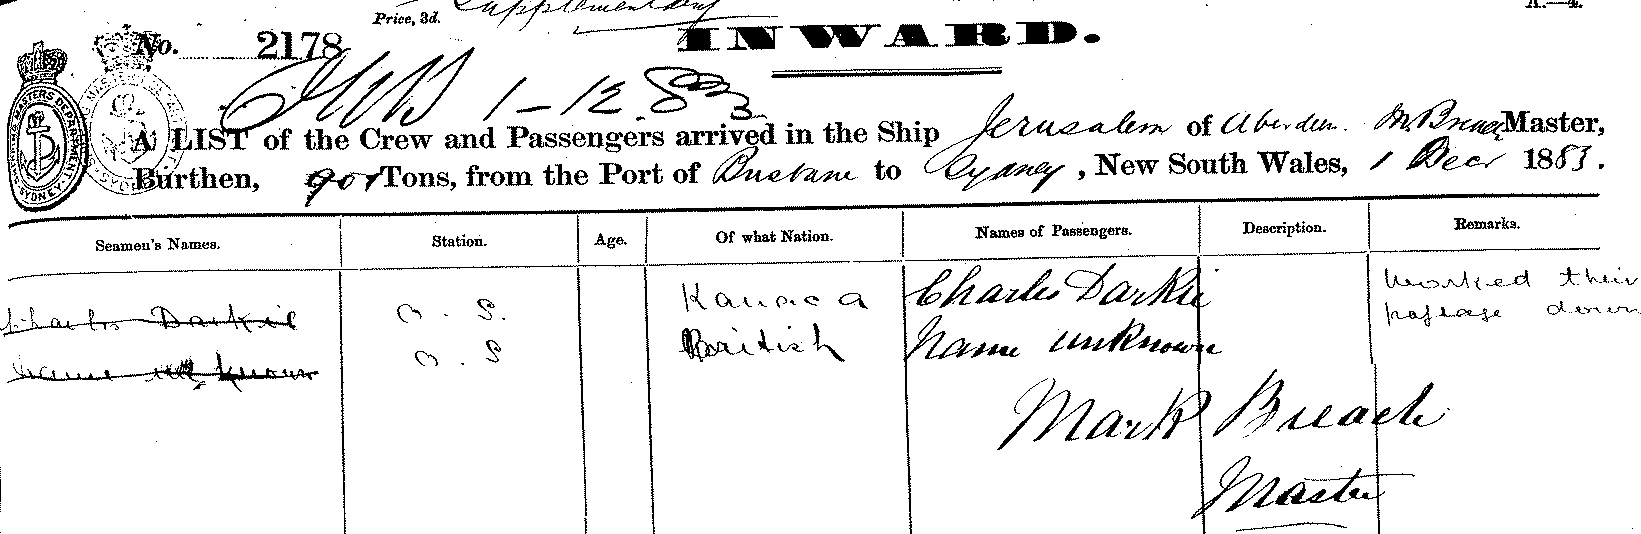 Price, 3d.
Supplementary
A.—4.
No. 2178
INWARD.
1-12.83
A LIST of the Crew and Passengers arrived in the Ship Jerusalem of Aberdeen. M. Breach Master,
Burthen, 901 Tons, from the Port of Brisbane to Sydney, New South Wales, 1 Decr 1883.
Seamen's Names. Station. Age. Of what Nation. Names of Passengers. Description. Remarks.
Charles Darkie O. S. Kanaca Charles Darkie Worked their
name unknown O. S British Name unknown passage down
Mark Breach
Master